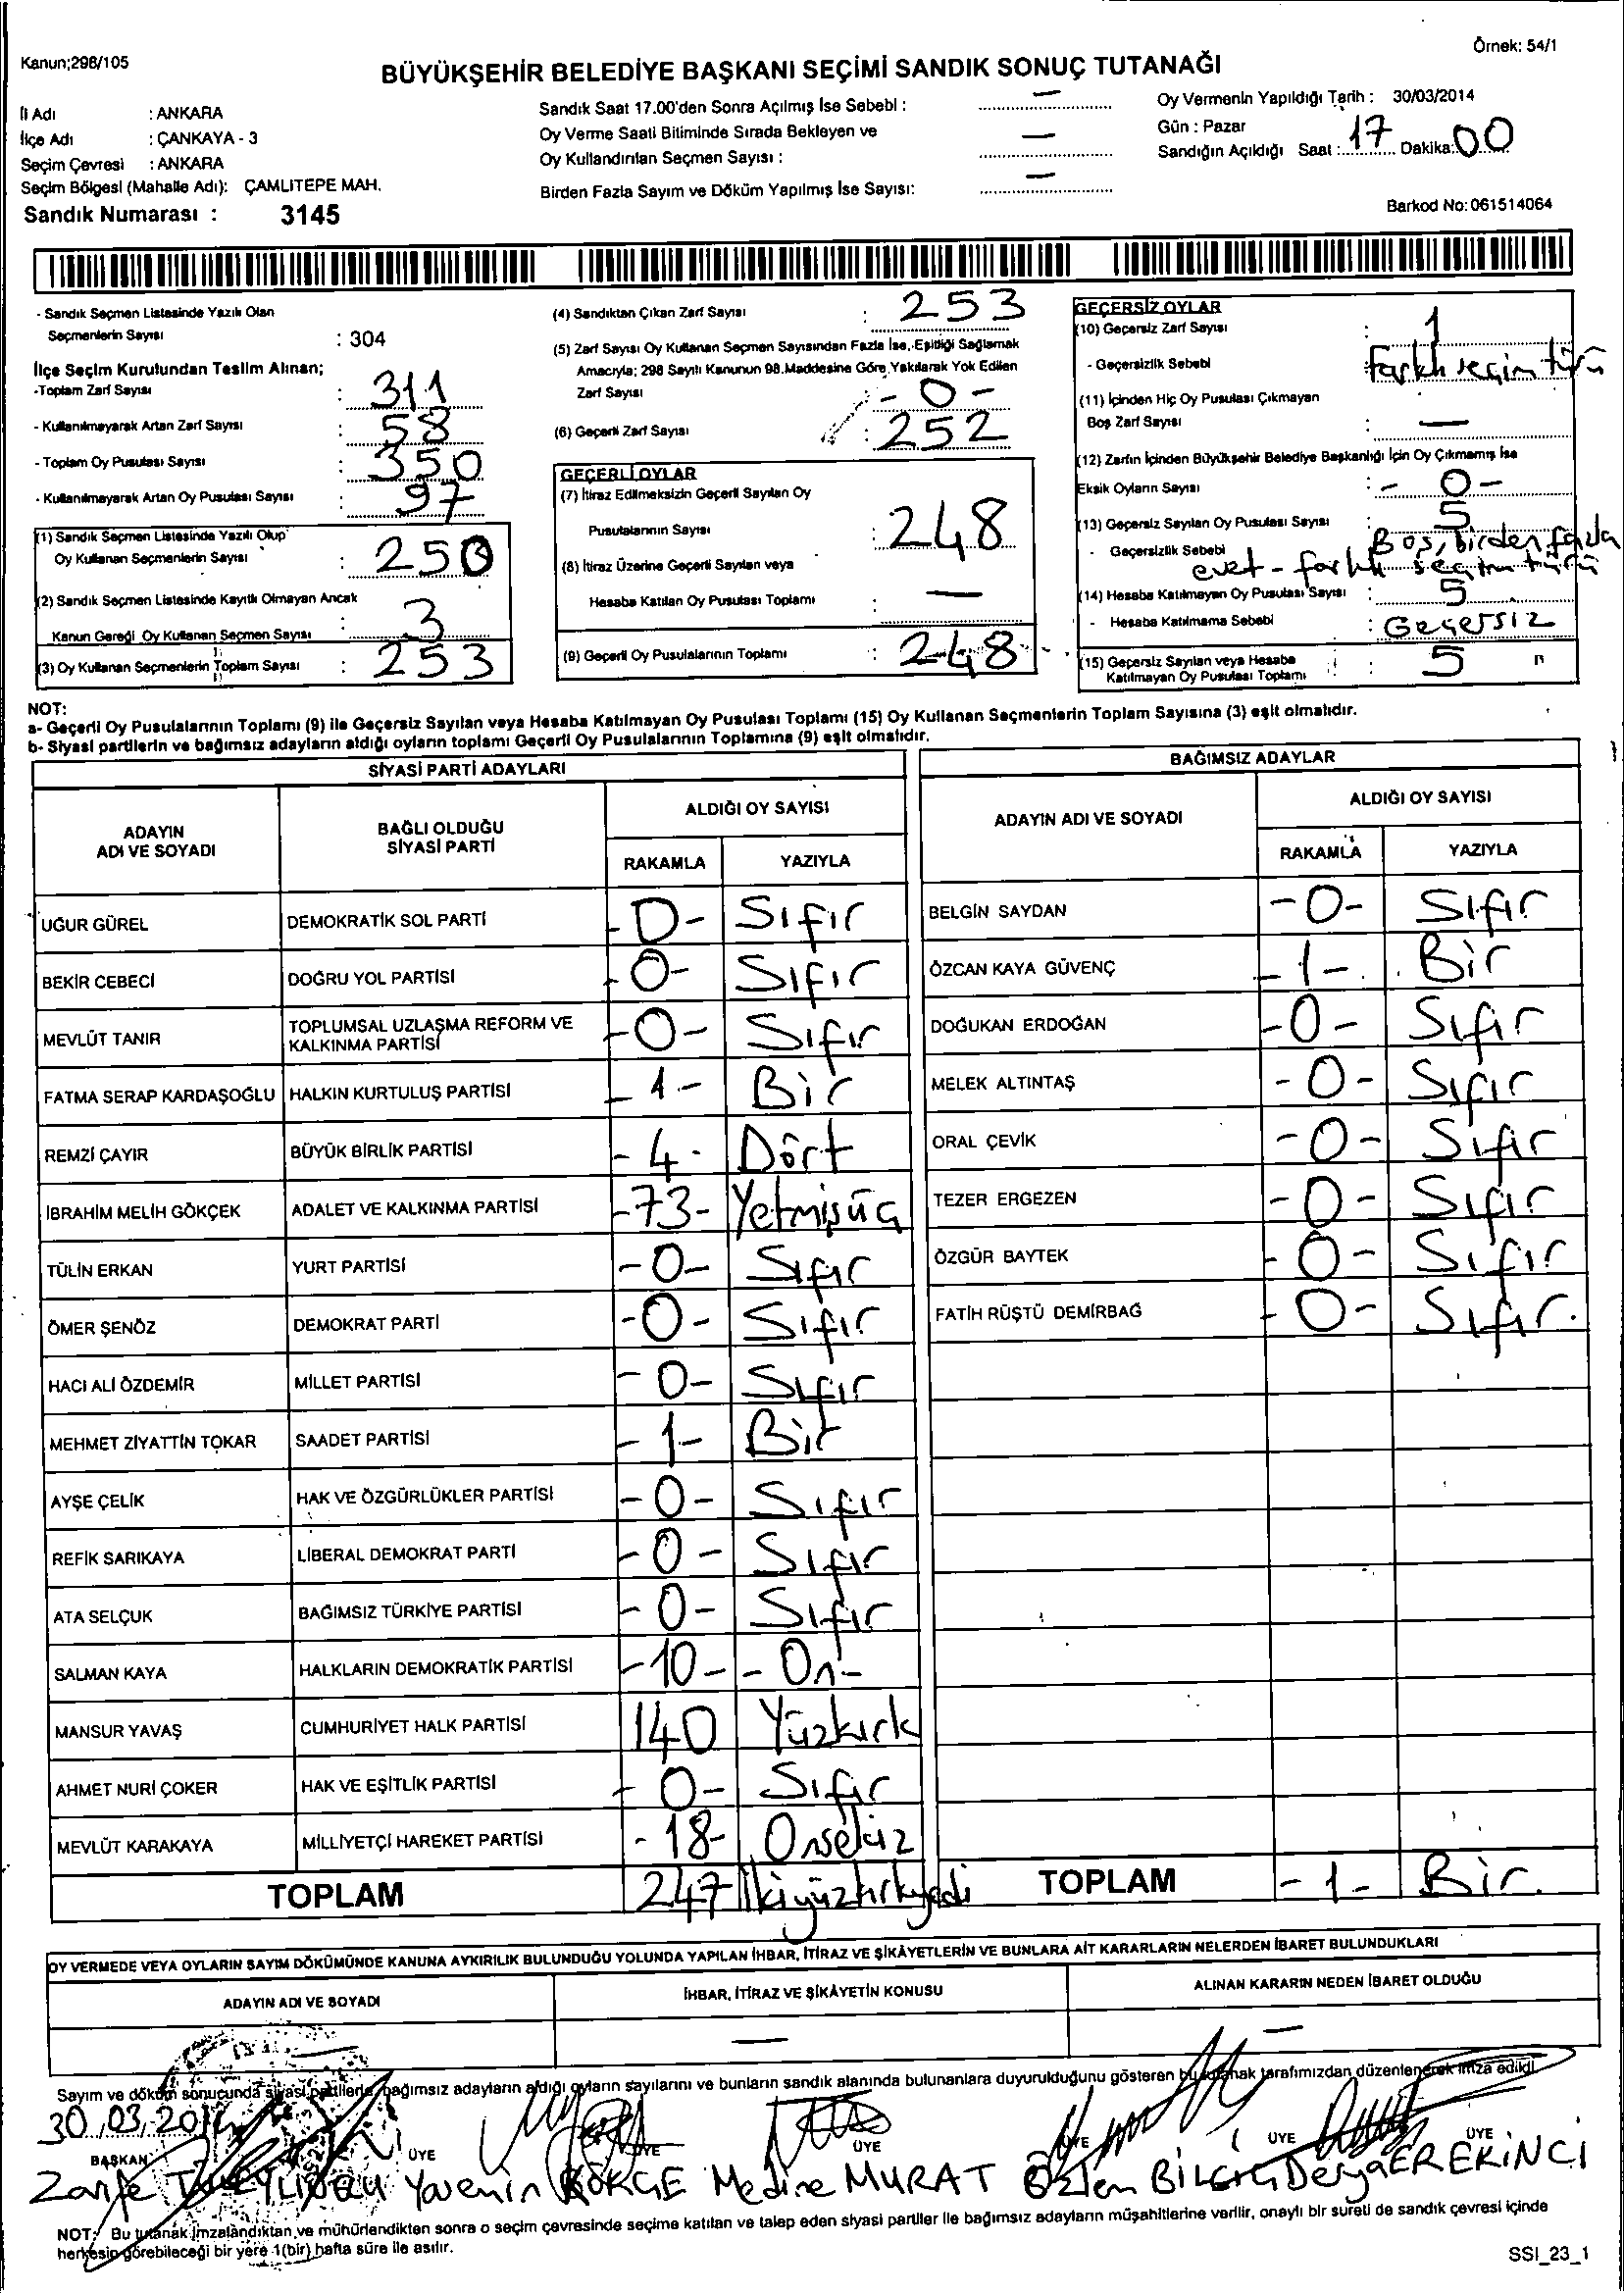 Kanun;298/105
Örnek: 54/1
BÜYÜKŞEHİR BELEDİYE BAŞKANI SEÇİMİ SANDIK SONUÇ TUTANAĞI
İl Adı : ANKARA
İlçe Adı : ÇANKAYA - 3
Seçim Çevresi : ANKARA
Seçim Bölgesi (Mahalle Adı): ÇAMLITEPE MAH.
Sandık Numarası : 3145
Sandık Saat 17.00'den Sonra Açılmış İse Sebebi : —
Oy Verme Saati Bitiminde Sırada Bekleyen ve
Oy Kullandırılan Seçmen Sayısı : —
Birden Fazla Sayım ve Döküm Yapılmış İse Sayısı: —
Oy Vermenin Yapıldığı Tarih : 30/03/2014
Gün : Pazar
Sandığın Açıldığı Saat : 17 Dakika: 00
Barkod No: 061514064
- Sandık Seçmen Listesinde Yazılı Olan
Seçmenlerin Sayısı : 304
İlçe Seçim Kurulundan Teslim Alınan;
-Toplam Zarf Sayısı : 311
- Kullanılmayarak Artan Zarf Sayısı : 58
- Toplam Oy Pusulası Sayısı : 350
- Kullanılmayarak Artan Oy Pusulası Sayısı : 97
(1) Sandık Seçmen Listesinde Yazılı Olup
Oy Kullanan Seçmenlerin Sayısı : 250
(2) Sandık Seçmen Listesinde Kayıtlı Olmayan Ancak
Kanun Gereği Oy Kullanan Seçmen Sayısı : 3
(3) Oy Kullanan Seçmenlerin Toplam Sayısı : 253
(4) Sandıktan Çıkan Zarf Sayısı : 253
(5) Zarf Sayısı Oy Kullanan Seçmen Sayısından Fazla İse, Eşitliği Sağlamak
Amacıyla; 298 Sayılı Kanunun 98.Maddesine Göre Yakılarak Yok Edilen
Zarf Sayısı : - 0 -
(6) Geçerli Zarf Sayısı : 252
GEÇERLİ OYLAR
(7) İtiraz Edilmeksizin Geçerli Sayılan Oy
Pusulalarının Sayısı : 248
(8) İtiraz Üzerine Geçerli Sayılan veya
Hesaba Katılan Oy Pusulası Toplamı : —
(9) Geçerli Oy Pusulalarının Toplamı : 248
GEÇERSİZ OYLAR
(10) Geçersiz Zarf Sayısı : 1
- Geçersizlik Sebebi : Farklı seçim türü
(11) İçinden Hiç Oy Pusulası Çıkmayan
Boş Zarf Sayısı : —
(12) Zarfın İçinden Büyükşehir Belediye Başkanlığı İçin Oy Çıkmamış İse
Eksik Oyların Sayısı : - 0 -
(13) Geçersiz Sayılan Oy Pusulası Sayısı : 5
- Geçersizlik Sebebi : Boş, birden fazla
evet - farklı seçim türü
(14) Hesaba Katılmayan Oy Pusulası Sayısı : 5
- Hesaba Katılmama Sebebi : Geçersiz
(15) Geçersiz Sayılan veya Hesaba
Katılmayan Oy Pusulası Toplamı : 5
NOT:
a- Geçerli Oy Pusulalarının Toplamı (9) ile Geçersiz Sayılan veya Hesaba Katılmayan Oy Pusulası Toplamı (15) Oy Kullanan Seçmenlerin Toplam Sayısına (3) eşit olmalıdır.
b- Siyasi partilerin ve bağımsız adayların aldığı oyların toplamı Geçerli Oy Pusulalarının Toplamına (9) eşit olmalıdır.
SİYASİ PARTİ ADAYLARI
ADAYIN ADI VE SOYADI BAĞLI OLDUĞU SİYASİ PARTİ ALDIĞI OY SAYISI RAKAMLA YAZIYLA
UĞUR GÜREL DEMOKRATİK SOL PARTİ - 0 - Sıfır
BEKİR CEBECİ DOĞRU YOL PARTİSİ - 0 - Sıfır
MEVLÜT TANIR TOPLUMSAL UZLAŞMA REFORM VE KALKINMA PARTİSİ - 0 - Sıfır
FATMA SERAP KARDAŞOĞLU HALKIN KURTULUŞ PARTİSİ - 1 - Bir
REMZİ ÇAYIR BÜYÜK BİRLİK PARTİSİ - 4 - Dört
İBRAHİM MELİH GÖKÇEK ADALET VE KALKINMA PARTİSİ - 73 - Yetmişüç
TÜLİN ERKAN YURT PARTİSİ - 0 - Sıfır
ÖMER ŞENÖZ DEMOKRAT PARTİ - 0 - Sıfır
HACI ALİ ÖZDEMİR MİLLET PARTİSİ - 0 - Sıfır
MEHMET ZİYATTİN TOKAR SAADET PARTİSİ - 1 - Bir
AYŞE ÇELİK HAK VE ÖZGÜRLÜKLER PARTİSİ - 0 - Sıfır
REFİK SARIKAYA LİBERAL DEMOKRAT PARTİ - 0 - Sıfır
ATA SELÇUK BAĞIMSIZ TÜRKİYE PARTİSİ - 0 - Sıfır
SALMAN KAYA HALKLARIN DEMOKRATİK PARTİSİ - 10 - - On -
MANSUR YAVAŞ CUMHURİYET HALK PARTİSİ 140 Yüzkırk
AHMET NURİ ÇOKER HAK VE EŞİTLİK PARTİSİ - 0 - Sıfır
MEVLÜT KARAKAYA MİLLİYETÇİ HAREKET PARTİSİ - 18 - Onsekiz
TOPLAM 247 İkiyüzkırkyedi
BAĞIMSIZ ADAYLAR
ADAYIN ADI VE SOYADI ALDIĞI OY SAYISI RAKAMLA YAZIYLA
BELGİN SAYDAN - 0 - Sıfır
ÖZCAN KAYA GÜVENÇ - 1 - Bir
DOĞUKAN ERDOĞAN - 0 - Sıfır
MELEK ALTINTAŞ - 0 - Sıfır
ORAL ÇEVİK - 0 - Sıfır
TEZER ERGEZEN - 0 - Sıfır
ÖZGÜR BAYTEK - 0 - Sıfır
FATİH RÜŞTÜ DEMİRBAĞ - 0 - Sıfır.
TOPLAM - 1 - Bir.
OY VERMEDE VEYA OYLARIN SAYIM DÖKÜMÜNDE KANUNA AYKIRILIK BULUNDUĞU YOLUNDA YAPILAN İHBAR, İTİRAZ VE ŞİKÂYETLERİN VE BUNLARA AİT KARARLARIN NELERDEN İBARET BULUNDUKLARI
ADAYIN ADI VE SOYADI İHBAR, İTİRAZ VE ŞİKÂYETİN KONUSU ALINAN KARARIN NEDEN İBARET OLDUĞU
— — —
Sayım ve döküm sonucunda siyasi partilerle, bağımsız adayların aldığı oyların sayılarını ve bunların sandık alanında bulunanlara duyurulduğunu gösteren bu tutanak tarafımızdan düzenlenerek imza edildi.
30.03.2014
BAŞKAN ÜYE ÜYE ÜYE ÜYE ÜYE ÜYE
Zarife Yasemin GÖKÇE Medine MURAT Özlem BİLGİÇ Derya ER EKİNCİ
NOT: Bu tutanak imzalandıktan ve mühürlendikten sonra o seçim çevresinde seçime katılan ve talep eden siyasi partiler ile bağımsız adayların müşahitlerine verilir, onaylı bir sureti de sandık çevresi içinde
herkesin görebileceği bir yere 1(bir) hafta süre ile asılır.
SSI_23_1